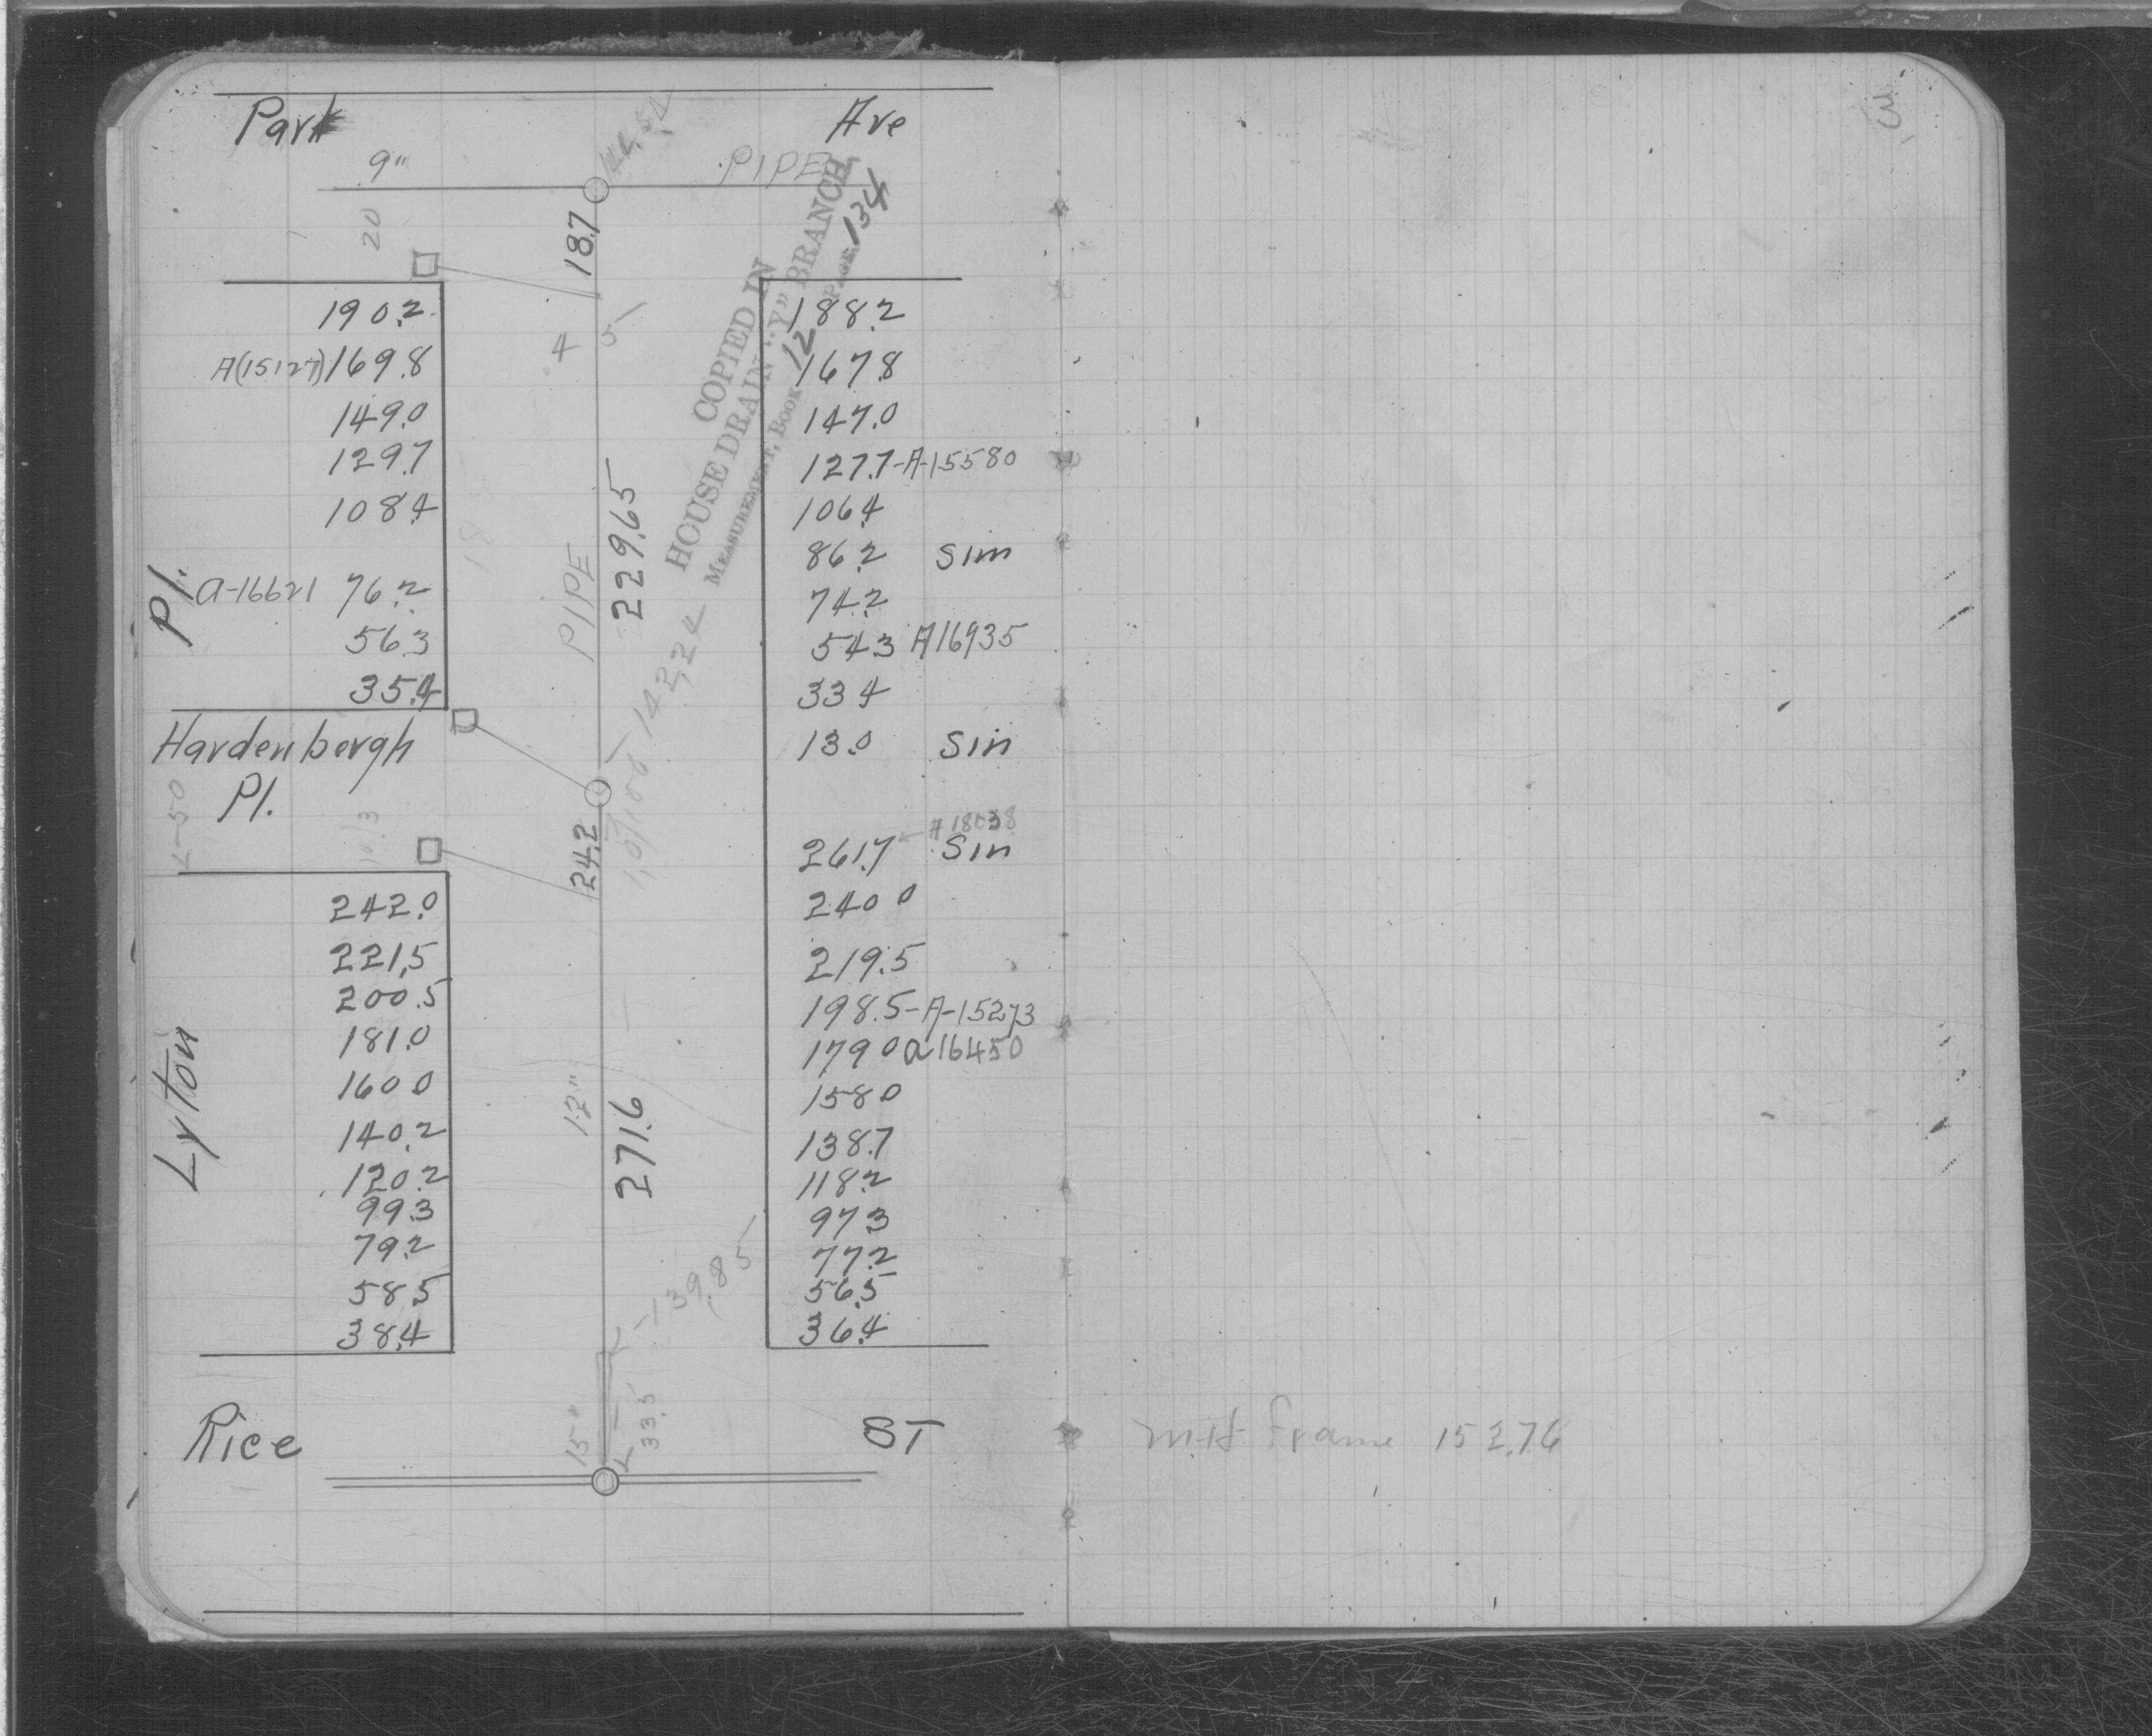 Park Ave
9" PIPE
20
18.7
190.2 188.2
A(15127) 169.8 167.8
4 5
149.0 147.0
129.7 127.7-A-15580
108.4 106.4
86.2 Sim
a-16621 76.2 74.2
56.3 54.3 A16935
35.4 33.4
13.0 Sin
Lyton Pl.
PIPE
229.65
COPIED IN
HOUSE DRAIN "Y" BRANCH
MEASUREMENT, BOOK 12 PAGE 134
Hardenbergh
Pl.
24.2
A 18038
261.7 Sin
242.0 240.0
221.5 219.5
200.5 198.5-A-15273
181.0 179.0 a16450
160.0 158.0
140.2 138.7
120.2 118.2
99.3 97.3
79.2 77.2
58.5 56.5
38.4 36.4
12"
271.6
139.85
15"
33.5
Rice ST
M.H. Frame 152.76